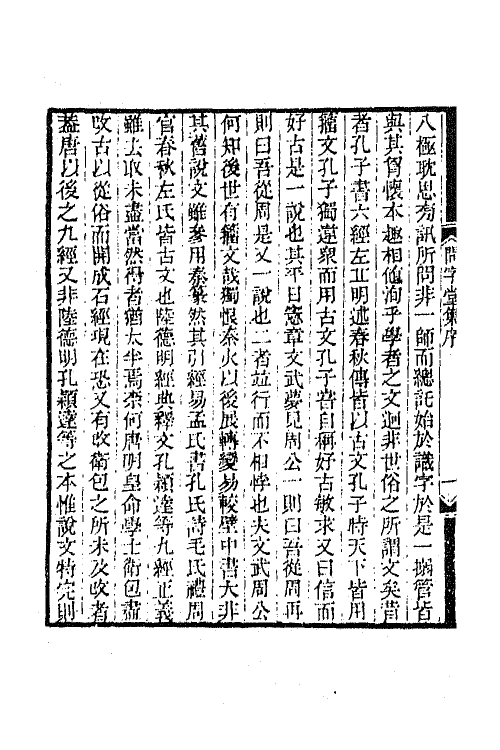 問字堂集序
一
八極耽思旁訊所問非一師而總託始於識字於是一搦管皆
與其胷懷本趣相値洵乎學者之文迥非世俗之所謂文矣昔
者孔子書六經左丘明述春秋傳皆以古文孔子時天下皆用
籒文孔子獨違衆而用古文孔子嘗自稱好古敏求又曰信而
好古是一說也其平日憲章文武夢見周公一則曰吾從周再
則曰吾從周是又一說也二者竝行而不相悖也夫文武周公
何知後世有籒文哉獨恨秦火以後展轉變易較壁中書大非
其舊說文雖參用秦篆然其引經易孟氏書孔氏詩毛氏禮周
官春秋左氏皆古文也陸德明經典釋文孔穎達等九經正義
雖去取未盡當然得者猶太半焉柰何唐明皇命學士衞包盡
改古以從俗而開成石經現在恐又有改衞包之所未及改者
葢唐以後之九經又非陸德明孔穎達等之本惟說文特完則